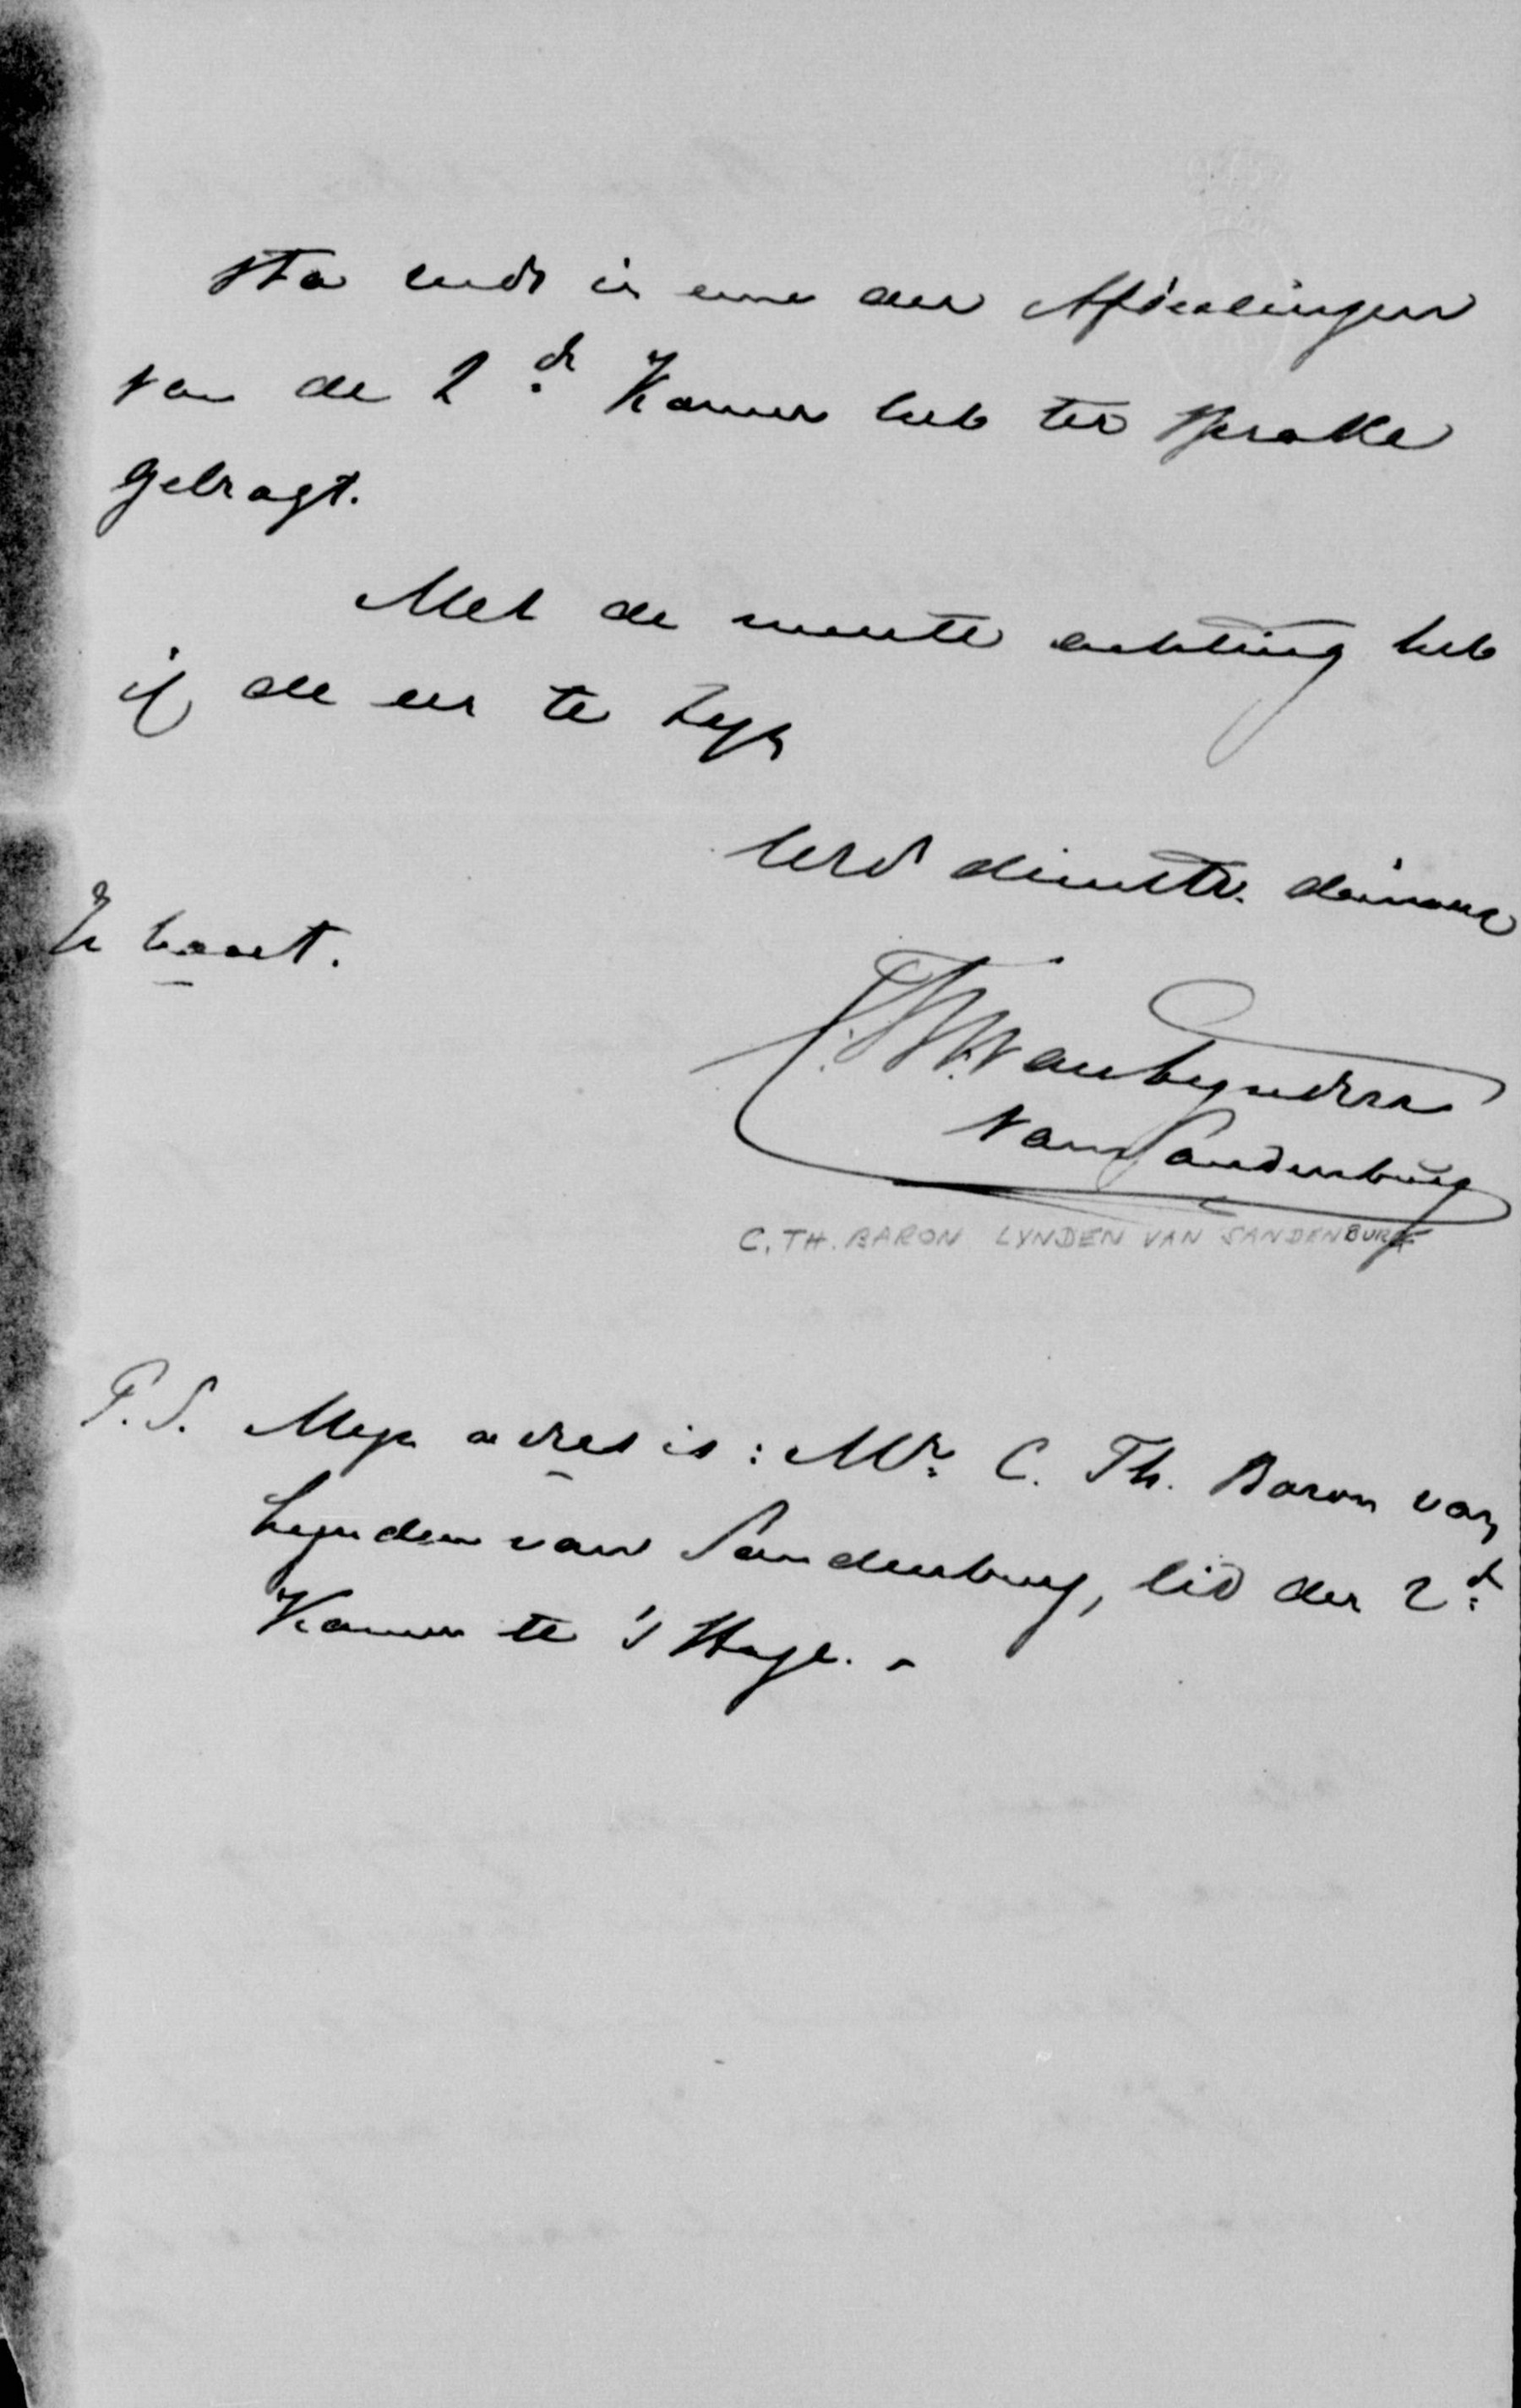 sta reeds in eene der Afdeelingen
van de 2de Kamer heb ter sprake
gebragt.
Met de meeste achting heb
ik de eer te zyn
UEd dienstv. dienaar
In haast.
C. Th. van Lynden
van Sandenburg
C. TH. BARON LYNDEN VAN SANDENBURG
P.S. Myn adres is: Mr. C. Th. Baron van
Lynden van Sandenburg, lid der 2de
Kamer te 's Hage.